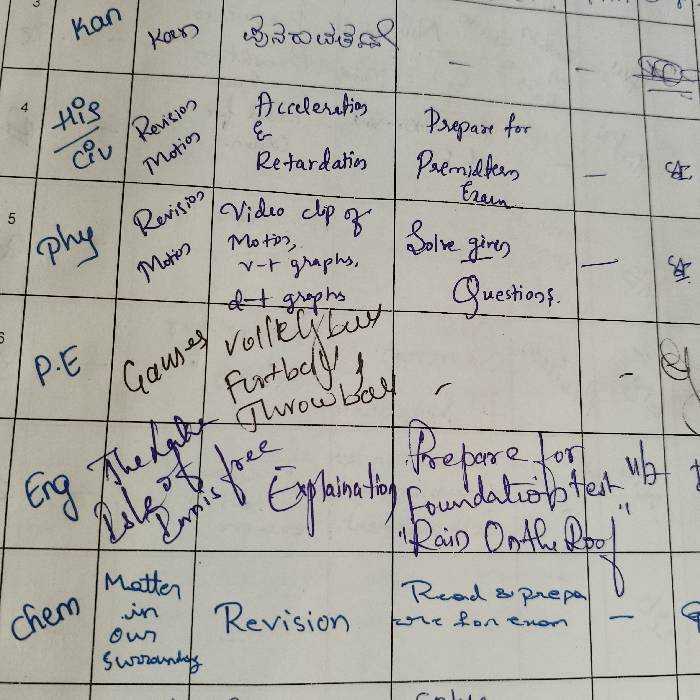 3
Kan
Kan
ಪುನರಾವರ್ತನೆ
—
—
4
His
Civ
Revision
Motion
Acceleration
&
Retardation
Prepare for
Premidterm
Exam
—
5
Phy
Revision
Motion
Video clip of
Motion,
v-t graphs,
d-t graphs
Solve given
Questions.
—
6
P.E
Games
Volleyball
Football,
Throwball
-
-
Eng
The Lake
Isle of
Innisfree
Explaination
Prepare for
foundation test
"Rain On the Roof"
Chem
Matter
in
our
Surroundings
Revision
Read & prepa
are for exam
—